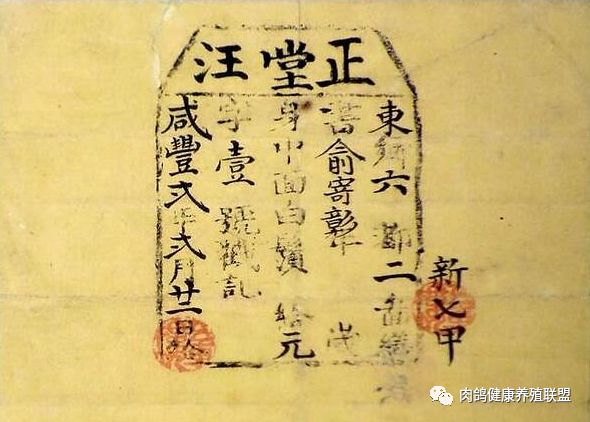 正堂汪
新七甲
東鄉六都二啚
書俞寄彰年 歲
身中面白鬚 元
字壹號
咸豐弍年弍月廿二日給
肉鸽健康养殖联盟